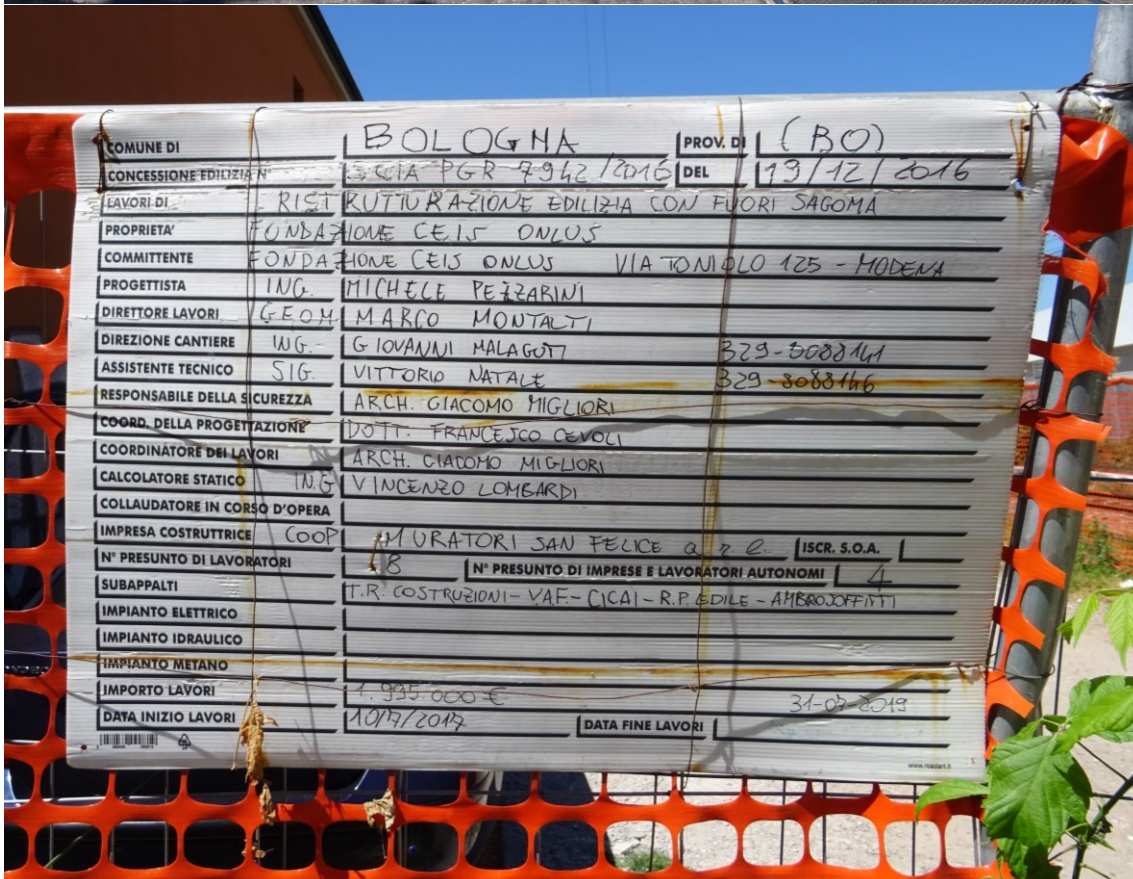 COMUNE DI BOLOGNA PROV. DI (BO)
CONCESSIONE EDILIZIA N° SCIA PGR 7942/2016 DEL 19/12/2016
LAVORI DI - RISTRUTTURAZIONE EDILIZIA CON FUORI SAGOMA
PROPRIETA' FONDAZIONE CEIS ONLUS
COMMITTENTE FONDAZIONE CEIS ONLUS VIA TONIOLO 125 - MODENA
PROGETTISTA ING. MICHELE PEZZARINI
DIRETTORE LAVORI GEOM MARCO MONTALTI
DIREZIONE CANTIERE ING.- GIOVANNI MALAGUTI 329-8088141
ASSISTENTE TECNICO SIG. VITTORIO NATALE 329-8088146
RESPONSABILE DELLA SICUREZZA ARCH. GIACOMO MIGLIORI
COORD. DELLA PROGETTAZIONE DOTT. FRANCESCO CEVOLI
COORDINATORE DEI LAVORI ARCH. GIACOMO MIGLIORI
CALCOLATORE STATICO ING VINCENZO LOMBARDI
COLLAUDATORE IN CORSO D'OPERA
IMPRESA COSTRUTTRICE COOP MURATORI SAN FELICE a r l ISCR. S.O.A.
N° PRESUNTO DI LAVORATORI 8 N° PRESUNTO DI IMPRESE E LAVORATORI AUTONOMI 4
SUBAPPALTI T.R. COSTRUZIONI - V.A.F. - CICAI - R.P. EDILE - AMBROSOFFITTI
IMPIANTO ELETTRICO
IMPIANTO IDRAULICO
IMPIANTO METANO
IMPORTO LAVORI 1.995.000 € 31-07-2019
DATA INIZIO LAVORI 10/7/2017 DATA FINE LAVORI
www.roadart.it